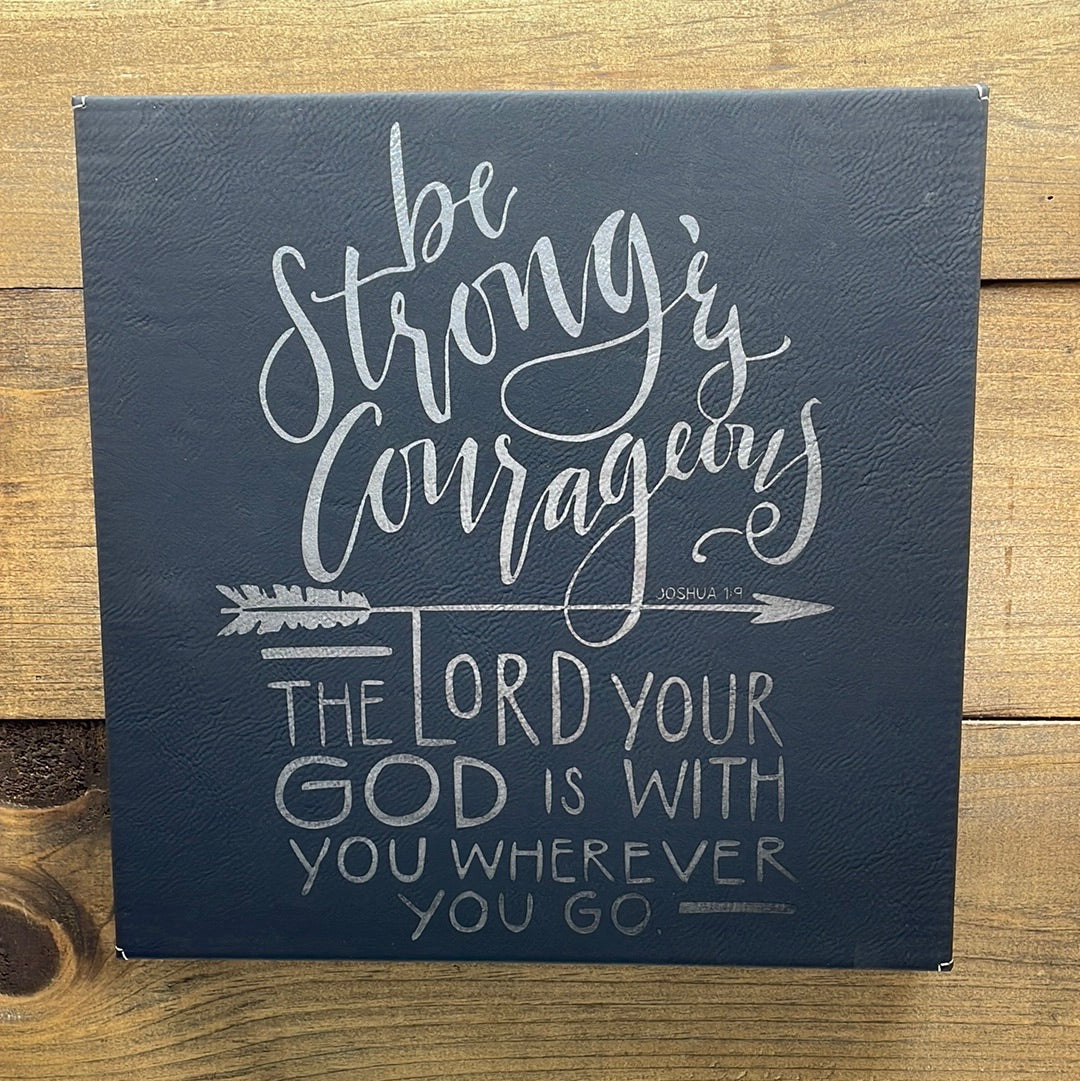 be
Strong &
Courageous
JOSHUA 1:9
THE LORD YOUR
GOD IS WITH
YOU WHEREVER
YOU GO